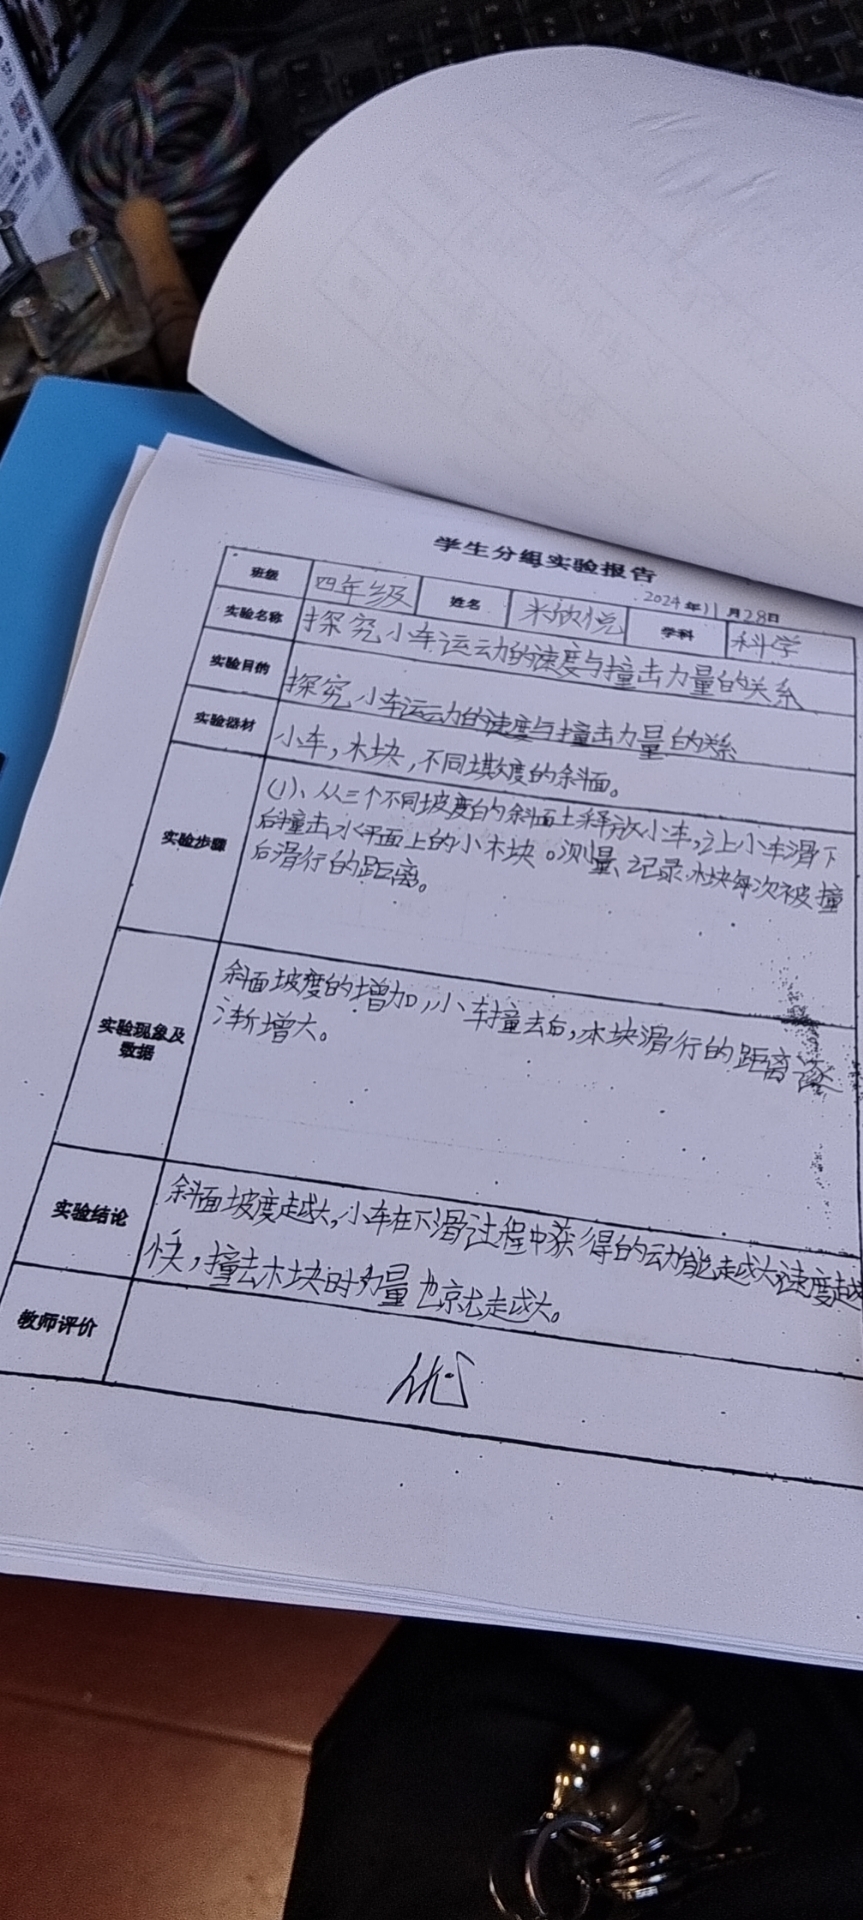 学生分组实验报告
2024年11月28日
班级 四年级 姓名 米欣悦 学科 科学
实验名称 探究小车运动的速度与撞击力量的关系
实验目的 探究小车运动的速度与撞击力量的关系
实验器材 小车，木块，不同坡度的斜面。
实验步骤 (1)、从三个不同坡度的斜面上释放小车，让小车滑下
后撞击水平面上的小木块。测量、记录木块每次被撞
后滑行的距离。
实验现象及
数据
斜面坡度的增加，小车撞击后，木块滑行的距离逐
渐增大。
实验结论 斜面坡度越大，小车在下滑过程中获得的动能越大速度越
快，撞击木块时力量也就越大。
教师评价 优